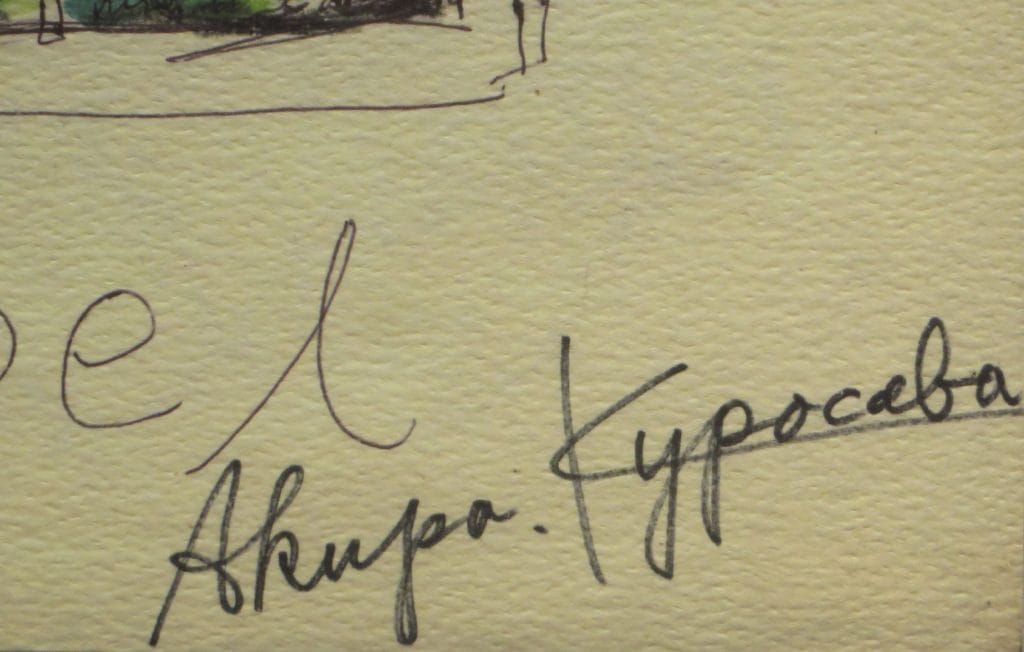 el
Акира. Куросава